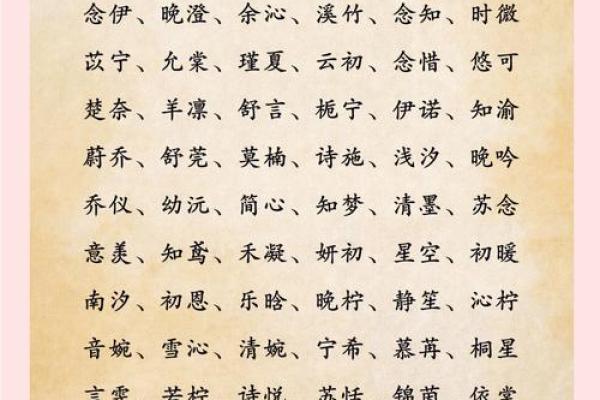 念伊、晚澄、余沁、溪竹、念知、时微
苡宁、允棠、瑾夏、云初、念惜、悠可
楚奈、羊凛、舒言、栀宁、伊诺、知渝
蔚乔、舒莞、莫楠、诗施、浅汐、晚吟
乔仪、幼沅、简心、知梦、清墨、苏念
意羙、知鸢、禾凝、妍初、星空、初暖
南汐、初恩、乐晗、晚柠、静笙、沁柠
音婉、雪沁、清婉、宁希、慕苒、桐星
言雯、若柠、诗悦、苏恬、锦茵、依棠